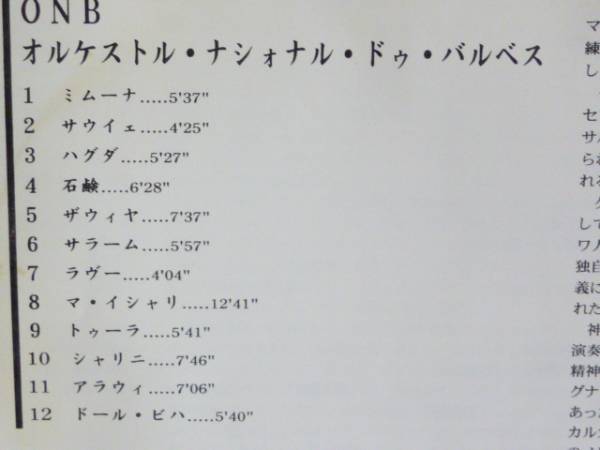 ONB
オルケストル・ナショナル・ドゥ・バルベス
1 ミムーナ.....5'37"
2 サウイェ.....4'25"
3 ハグダ.....5'27"
4 石鹸.....6'28"
5 ザウィヤ.....7'37"
6 サラーム.....5'57"
7 ラヴー.....4'04"
8 マ・イシャリ.....12'41"
9 トゥーラ.....5'41"
10 シャリニ.....7'46"
11 アラウィ.....7'06"
12 ドール・ビハ.....5'40"
マ
練
し
セ
サ
られ
れる
して
ワ人
独自
義に
れた
神
演奏
精神
グナ
あっ
カル